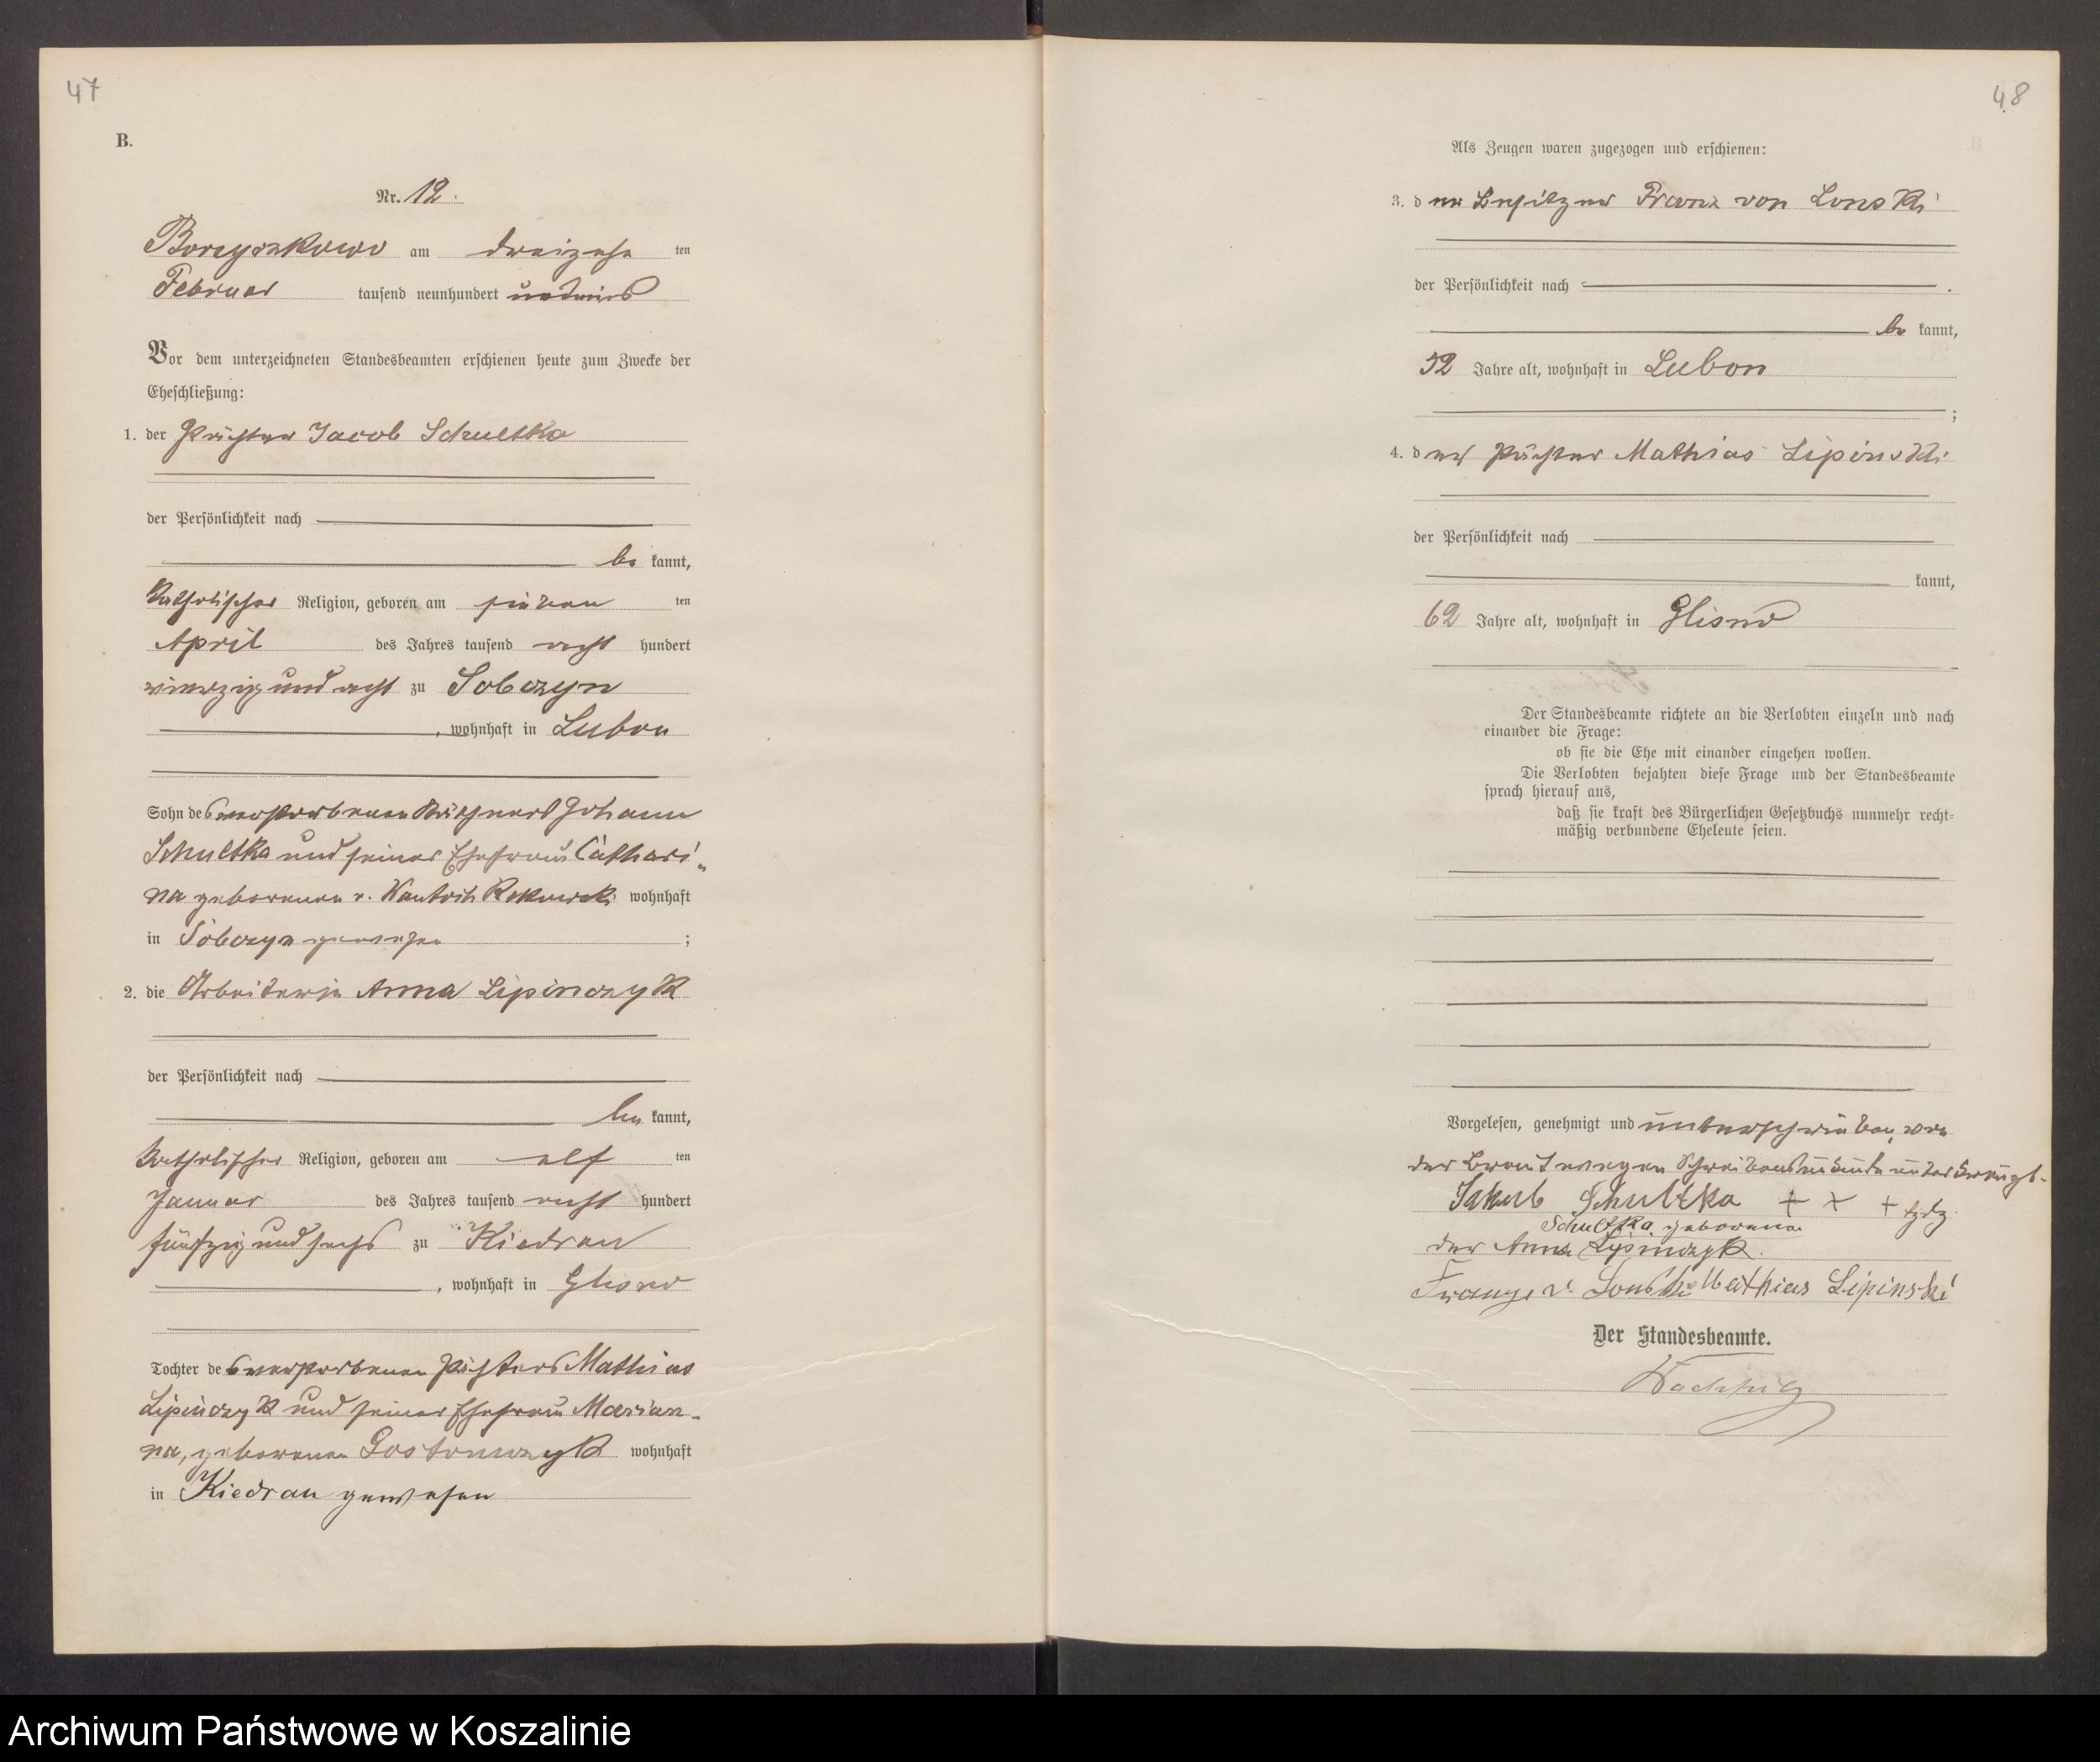 47
B.
Nr. 12.
Borzyszkowo am dreizehn ten
Februar tausend neunhundert und
Vor dem unterzeichneten Standesbeamten erschienen heute zum Zwecke der
Eheschließung:
1. der Pächter Jacob Schultka
der Persönlichkeit nach
be kannt,
katholischer Religion, geboren am sieben ten
April des Jahres tausend acht hundert
vierzig und acht zu Sobczyn
, wohnhaft in Lubon
Sohn des verstorbenen Johann
Schultka und seiner Ehefrau Cathari-
na geborenen v. Wantoch Rekowski wohnhaft
in Sobczyn gewesen ;
2. die Arbeiterin Anna Lipinczyk
der Persönlichkeit nach
be kannt,
katholischer Religion, geboren am elf ten
Januar des Jahres tausend acht hundert
fünfzig und sechs zu Kiedrau
, wohnhaft in Glisno
Tochter des verstorbenen Pächters Mathias
Lipinczyk und seiner Ehefrau Marian-
na, geborenen Gostomczyk wohnhaft
in Kiedrau gewesen
48
Als Zeugen waren zugezogen und erschienen:
3. der Besitzer Franz von Lonski
der Persönlichkeit nach .
be kannt,
52 Jahre alt, wohnhaft in Lubon
;
4. der Pächter Mathias Lipinski
der Persönlichkeit nach
kannt,
62 Jahre alt, wohnhaft in Glisno
Der Standesbeamte richtete an die Verlobten einzeln und nach
einander die Frage:
ob sie die Ehe mit einander eingehen wollen.
Die Verlobten bejahten diese Frage und der Standesbeamte
sprach hierauf aus,
daß sie kraft des Bürgerlichen Gesetzbuchs nunmehr recht-
mäßig verbundene Eheleute seien.
Vorgelesen, genehmigt und unterschrieben, von
der Braut wegen unterkreuzt.
Jakub Schultka + + +
Schultka geborene
der Anna Lipinczyk.
v. Lonski Mathias Lipinski
Der Standesbeamte.
Archiwum Państwowe w Koszalinie